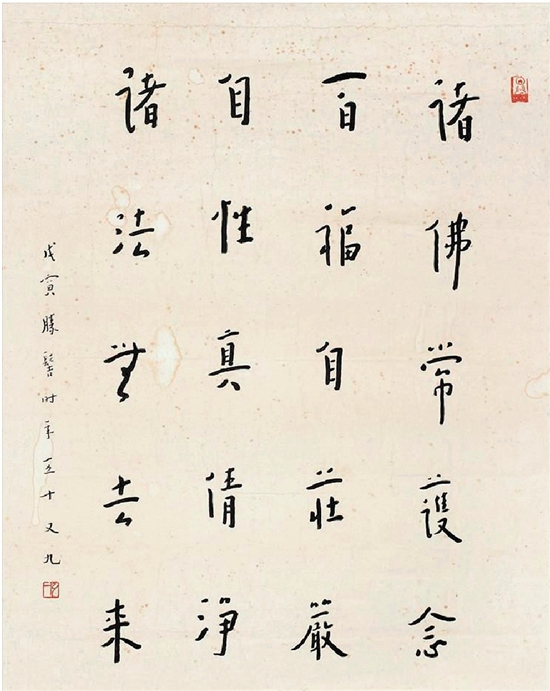 諸佛常護念
百福自莊嚴
自性真清淨
諸法無去来
戊寅勝髻时年五十又九